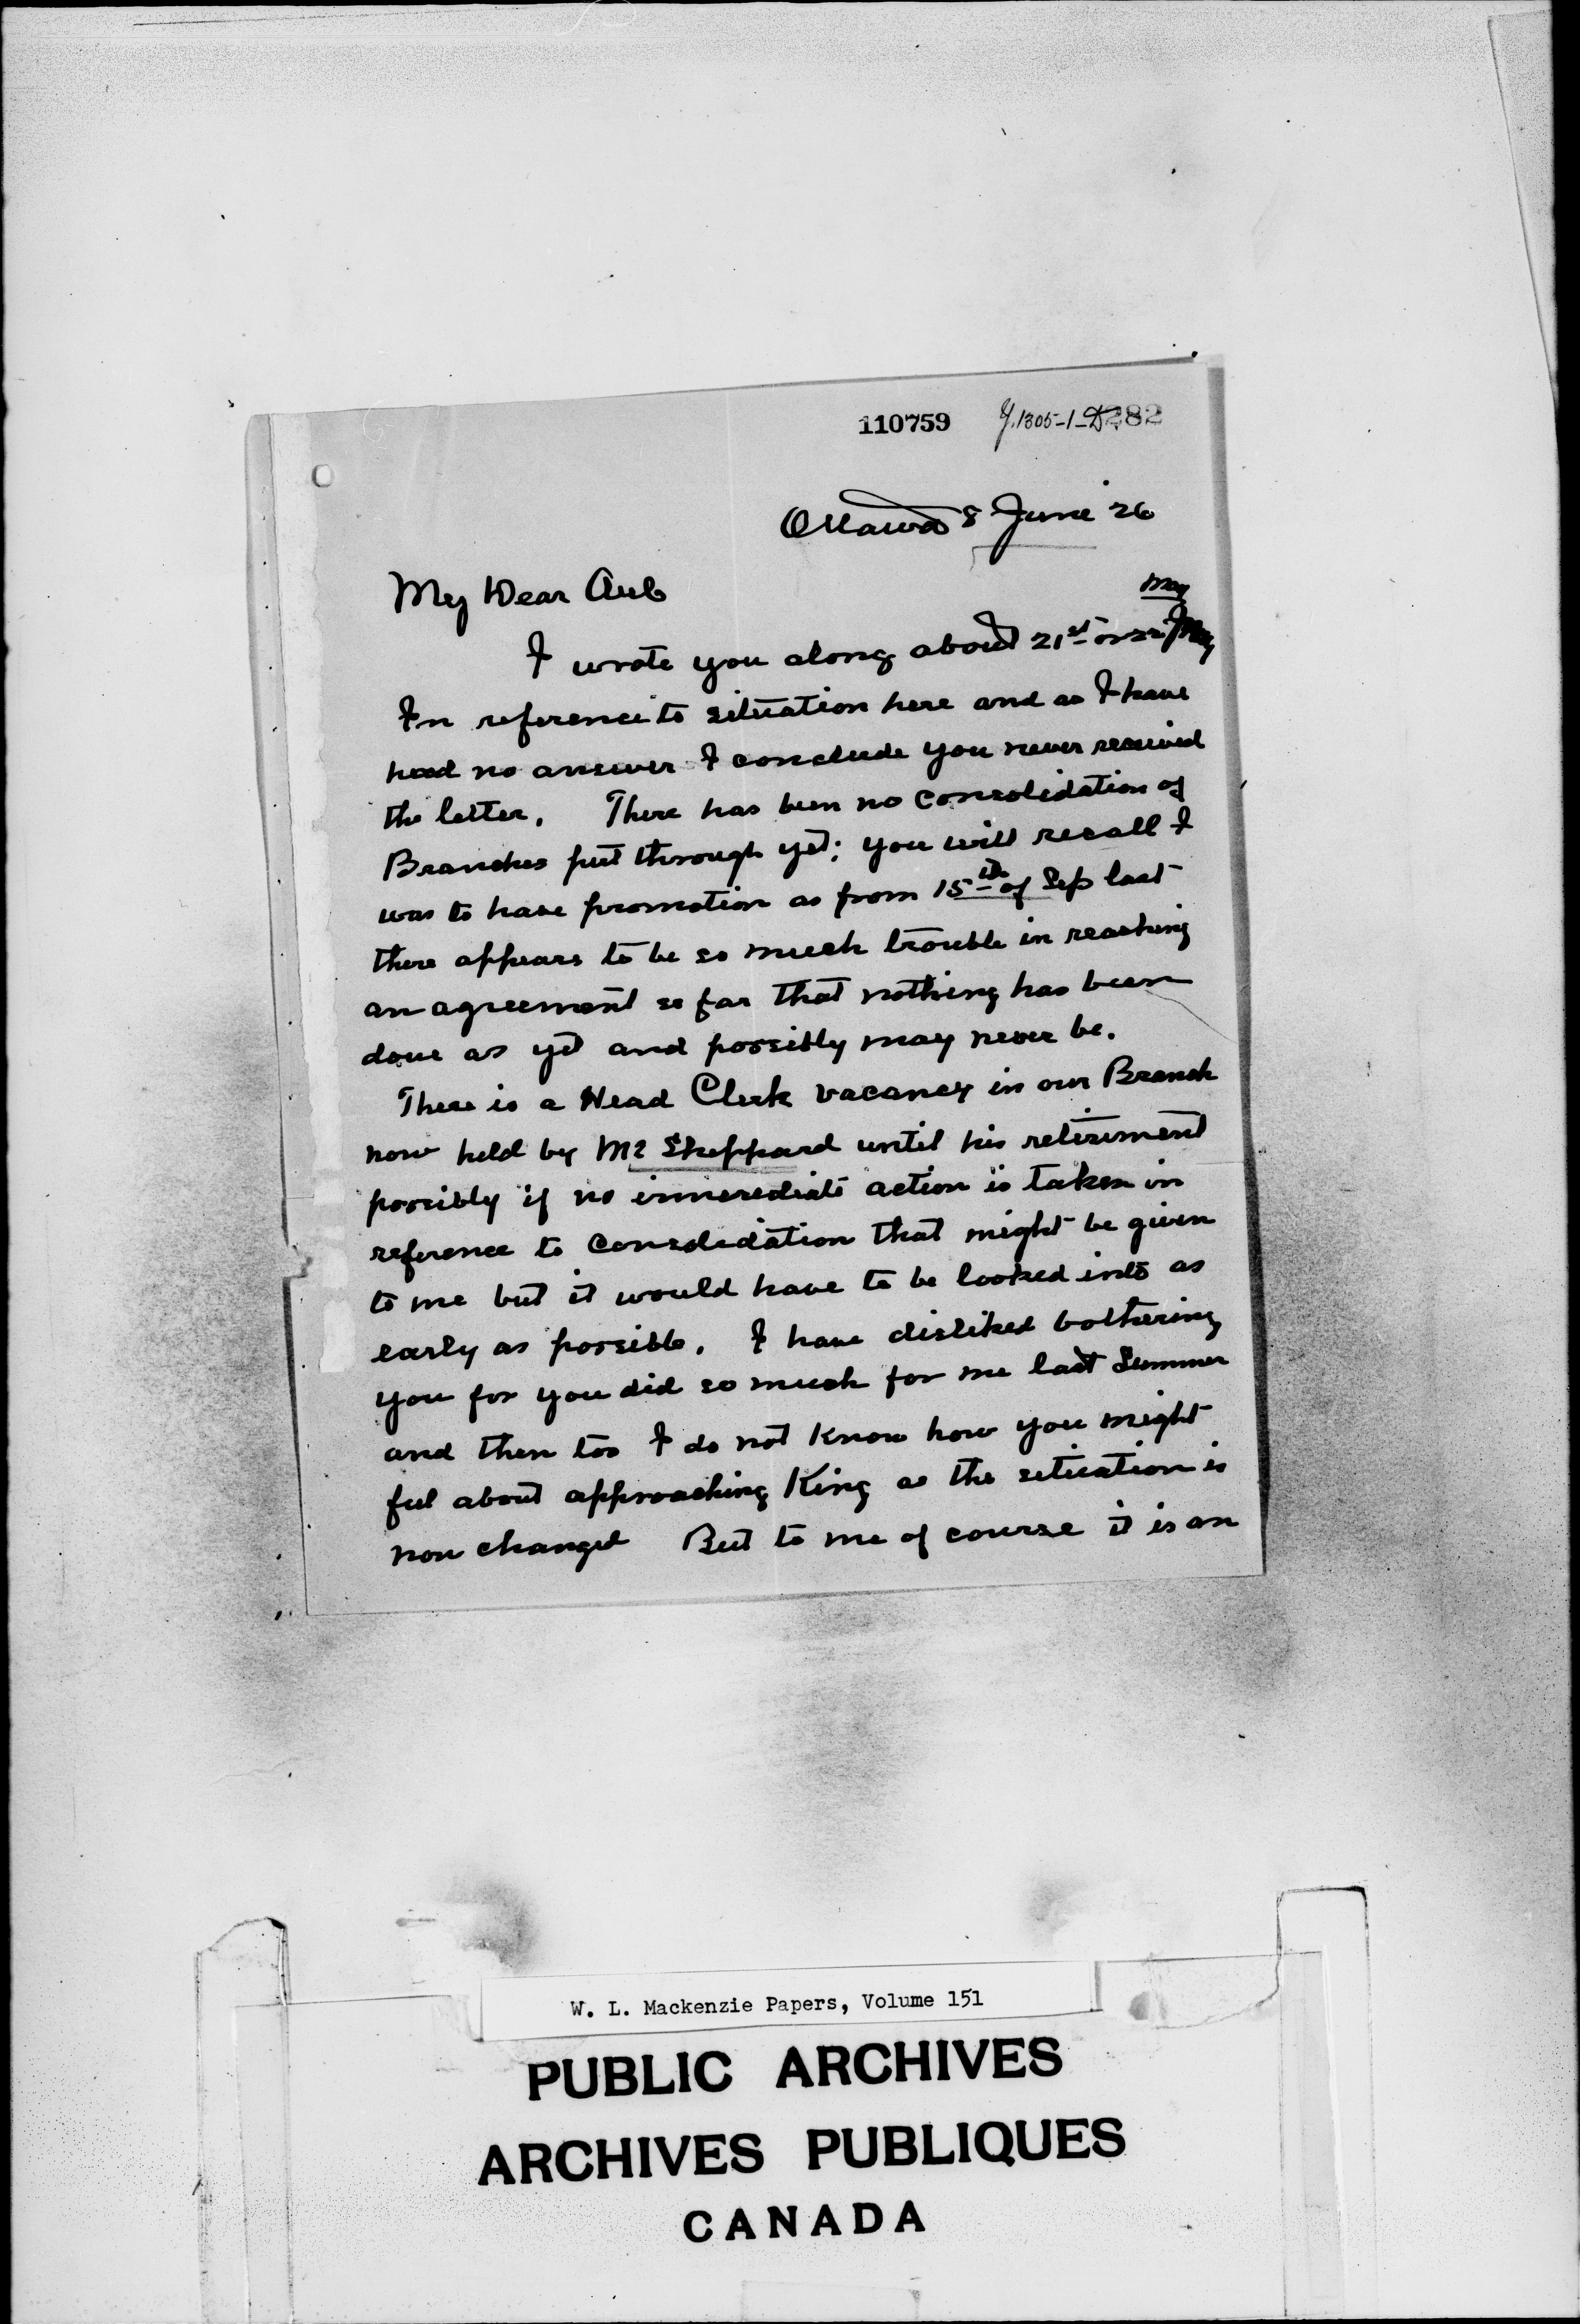 110759 Y.1305-1-D282
Ottawa 8 June '26
My Dear Aub
May
I wrote you along about 21st or 22 May
In reference to situation here and as I have
had no answer I conclude you never received
the letter. There has been no consolidation of
Branches put through yet; you will recall I
was to have promotion as from 15th of Sep last
there appears to be so much trouble in reaching
an agreement so far that nothing has been
done as yet and possibly may never be.
There is a Head Clerk vacancy in our Branch
now held by Mr Sheppard until his retirement
possibly if no immediate action is taken in
reference to consolidation that might be given
to me but it would have to be looked into as
early as possible. I have disliked bothering
you for you did so much for me last Summer
and then too I do not know how you might
feel about approaching King as the situation is
now changed But to me of course it is an
W. L. Mackenzie Papers, Volume 151
PUBLIC ARCHIVES
ARCHIVES PUBLIQUES
CANADA